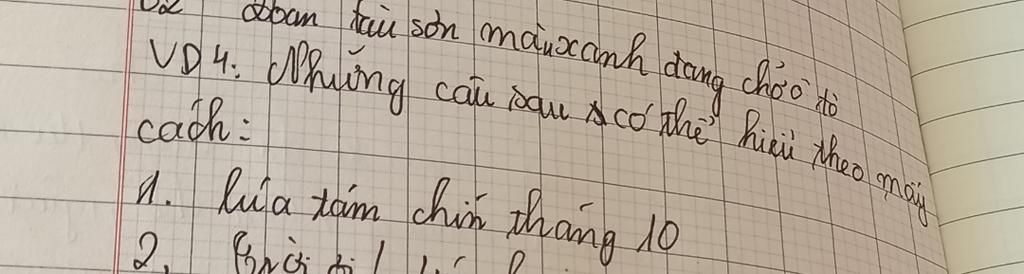 đoàn tàu sơn màu xanh đang chở ô tô
VD4: Những câu sau có thể hiểu theo mấy
cách:
1. Lúa tám chín tháng 10
2.